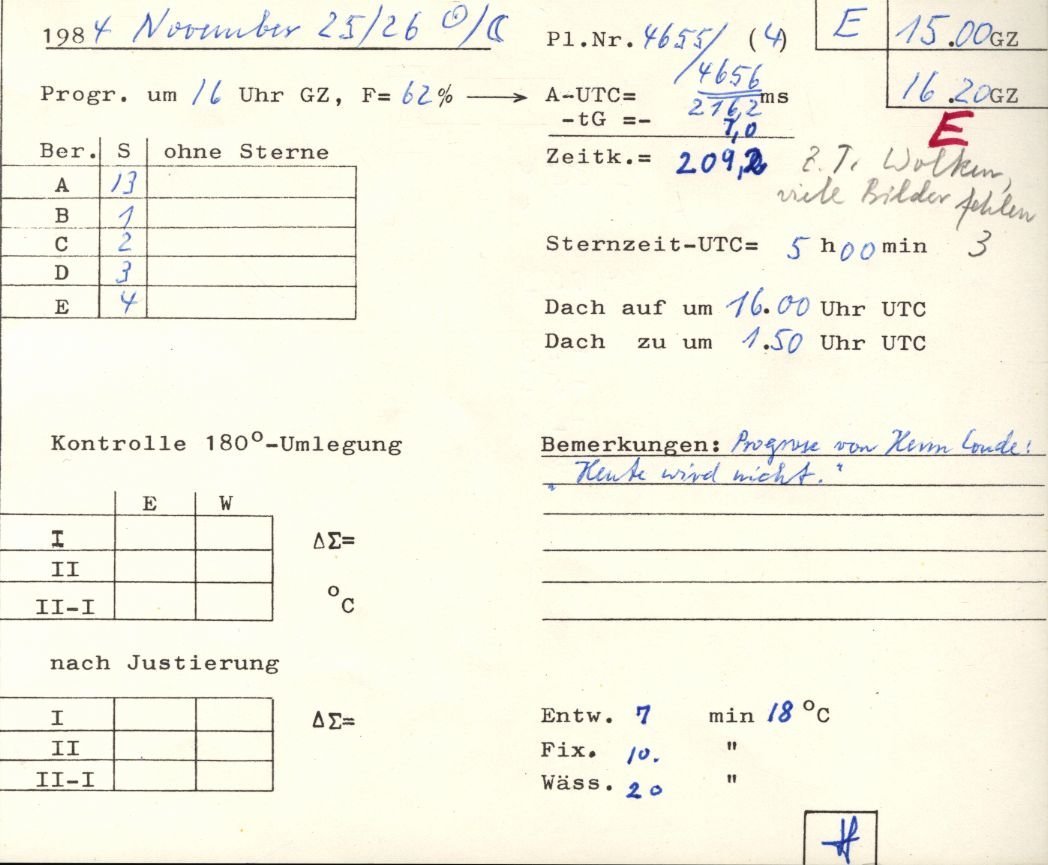 1984 November 25/26 ☉/☾
Pl.Nr. 4655/ (4)
/4656
E 15.00GZ
16.20GZ
E
Progr. um 16 Uhr GZ, F= 62% → A-UTC= 216,2 ms
-tG =- 7,0
Zeitk.= 209,2
z.T. Wolken,
viele Bilder fehlen
3
Ber. S ohne Sterne
A 13
B 1
C 2
D 3
E 4
Sternzeit-UTC= 5 h 00 min
Dach auf um 16.00 Uhr UTC
Dach zu um 1.50 Uhr UTC
Kontrolle 180°-Umlegung
E W
I ΔΣ=
II
II-I °C
nach Justierung
I ΔΣ=
II
II-I
Bemerkungen: Prognose von Herrn
"Heute wird nicht."
Entw. 7 min 18 °C
Fix. 10. "
Wäss. 20 "